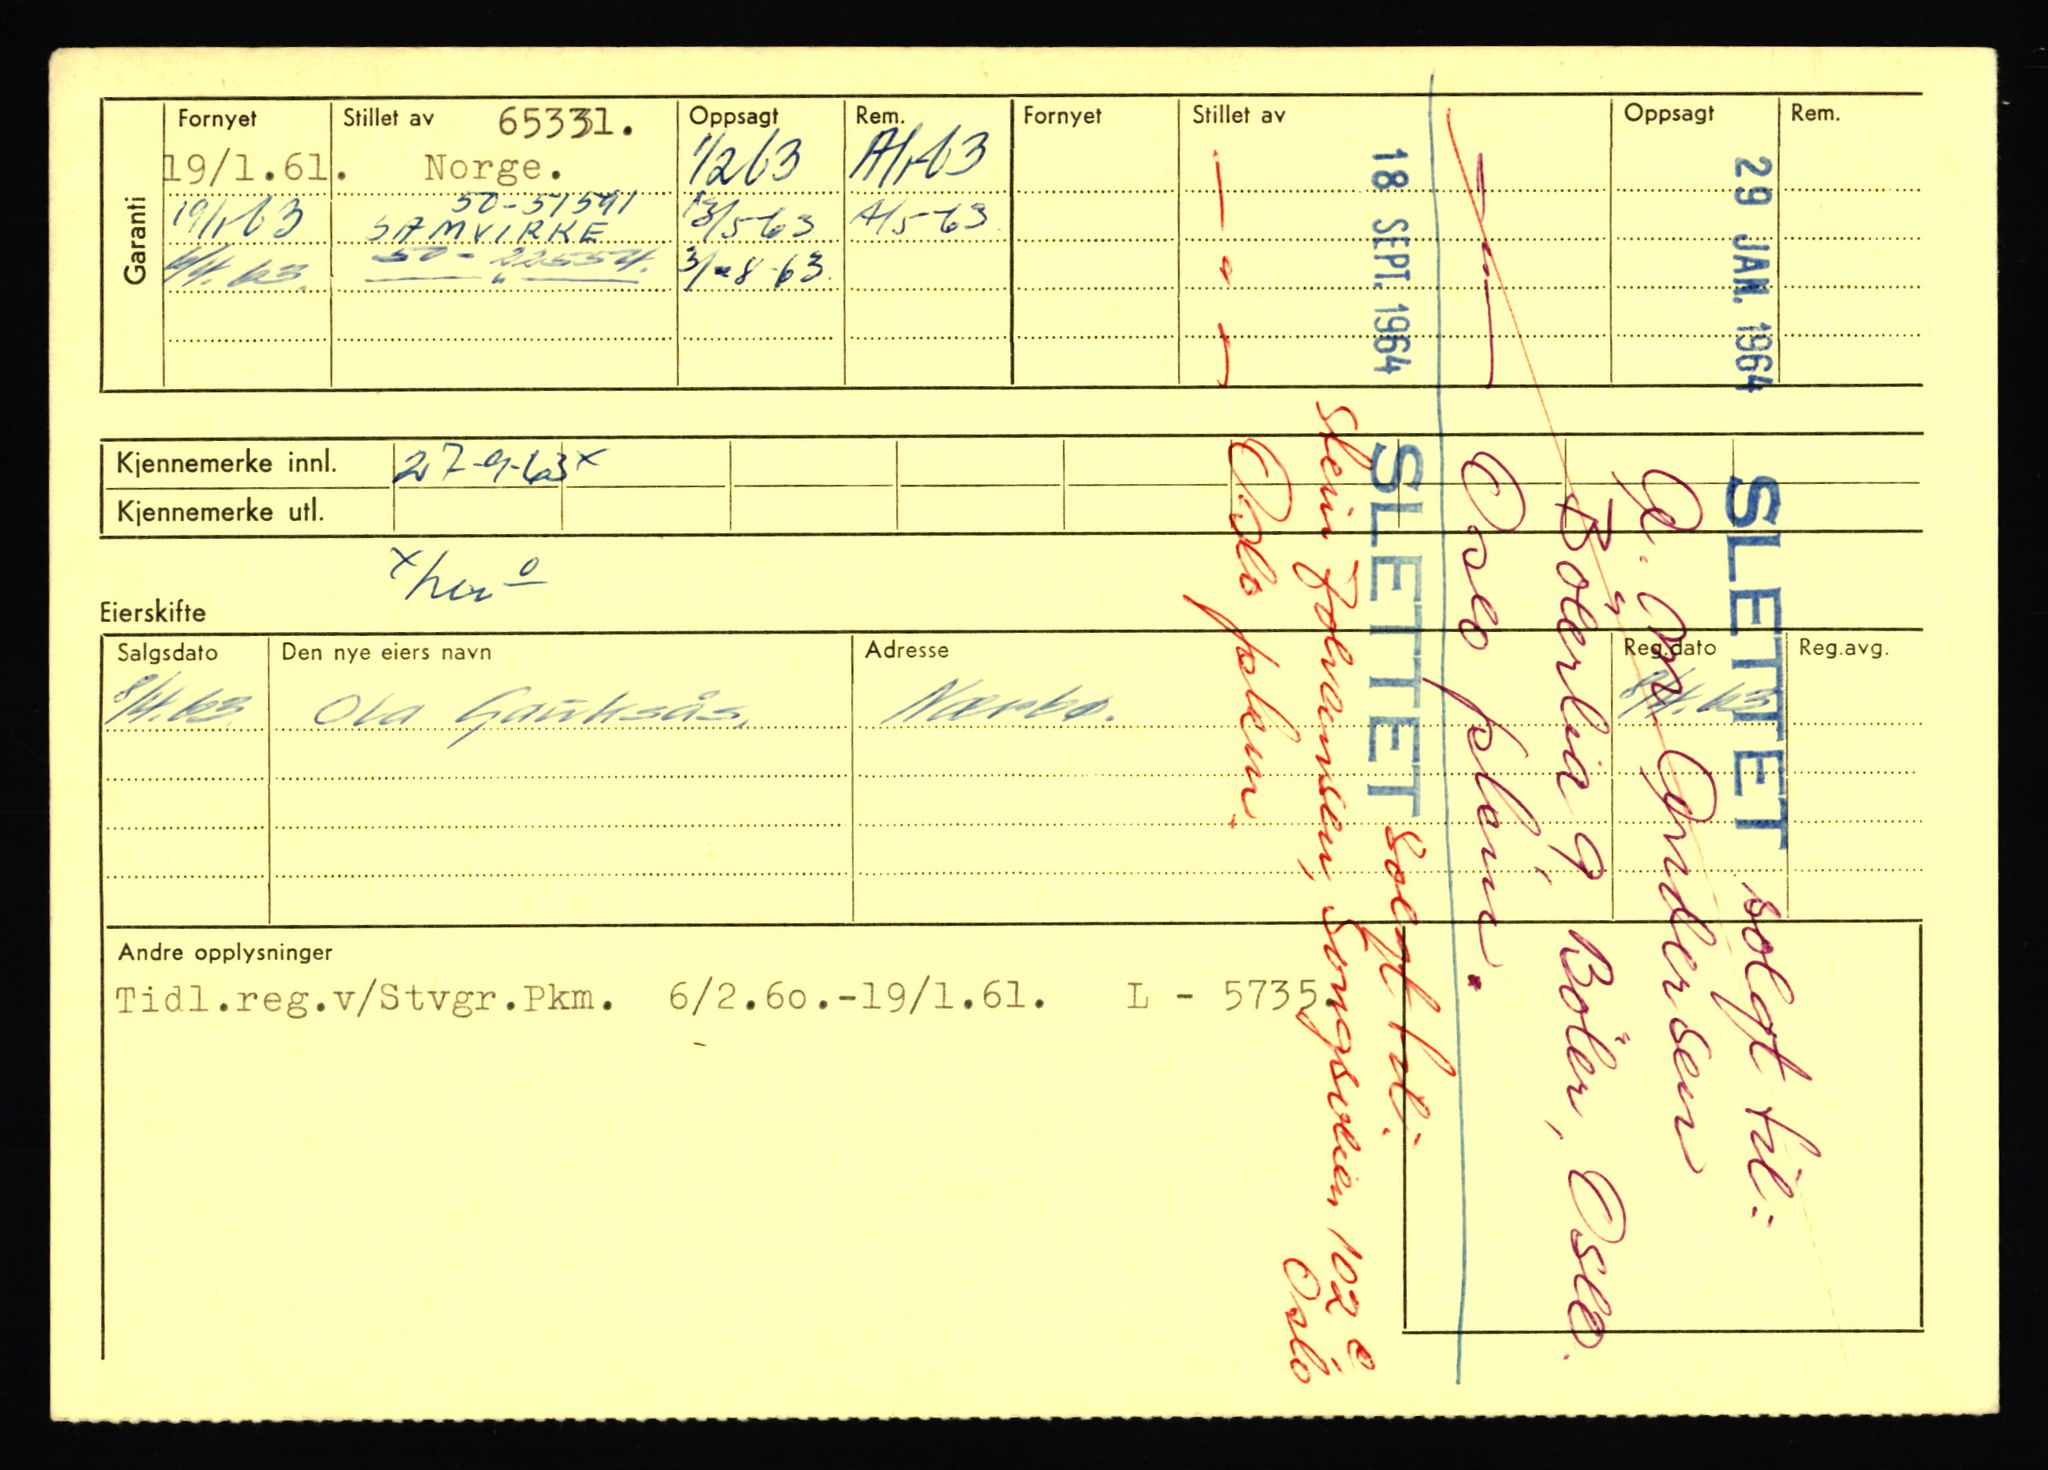 Garanti
Fornyet Stillet av 65331. Oppsagt Rem. Fornyet Stillet av Oppsagt Rem.
19/1.61. Norge. 1/2 63
50-51591
19/1-63 SAMVIRKE 13/5-63 A/5-63
6/4.63. 50-22554. 3/-8-63.
Kjennemerke innl. 27-9-63 x
Kjennemerke utl.
x
Eierskifte
Salgsdato Den nye eiers navn Adresse Reg.dato Reg.avg.
8/4.63. Ola Gauksås. Nærbø. 8/4.63
Andre opplysninger
Tidl.reg.v/Stvgr.Pkm. 6/2.60.-19/1.61. L - 5735.
29 JAN. 1964 SLETTET solgt til:
Andersen
Bölerlia 9, Böler, Oslo.
Oslo pkm.
18 SEPT. 1964 SLETTET solgt til:
Stein Songsveien 102 c
Oslo
Oslo pkm.